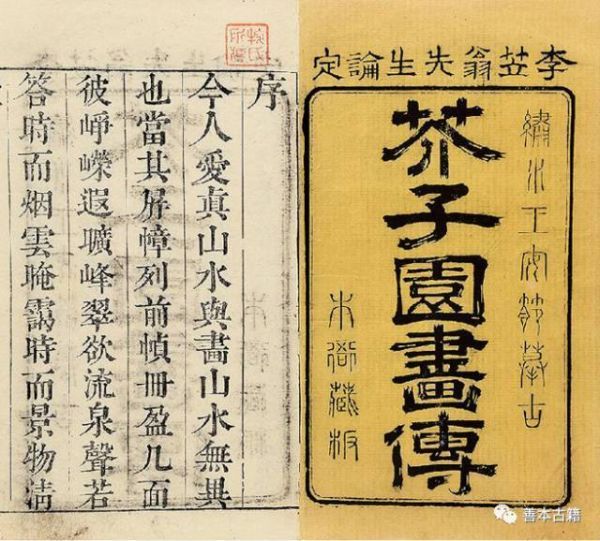 李笠翁先生論定
繡水王安節摹古
芥子園畫傳
本衙藏板
序
今人愛真山水與畫山水無異
也當其屏幛列前幀冊盈几面
彼崢嶸遐曠峰翠欲流泉聲若
答時而烟雲晻靄時而景物淸
善本古籍